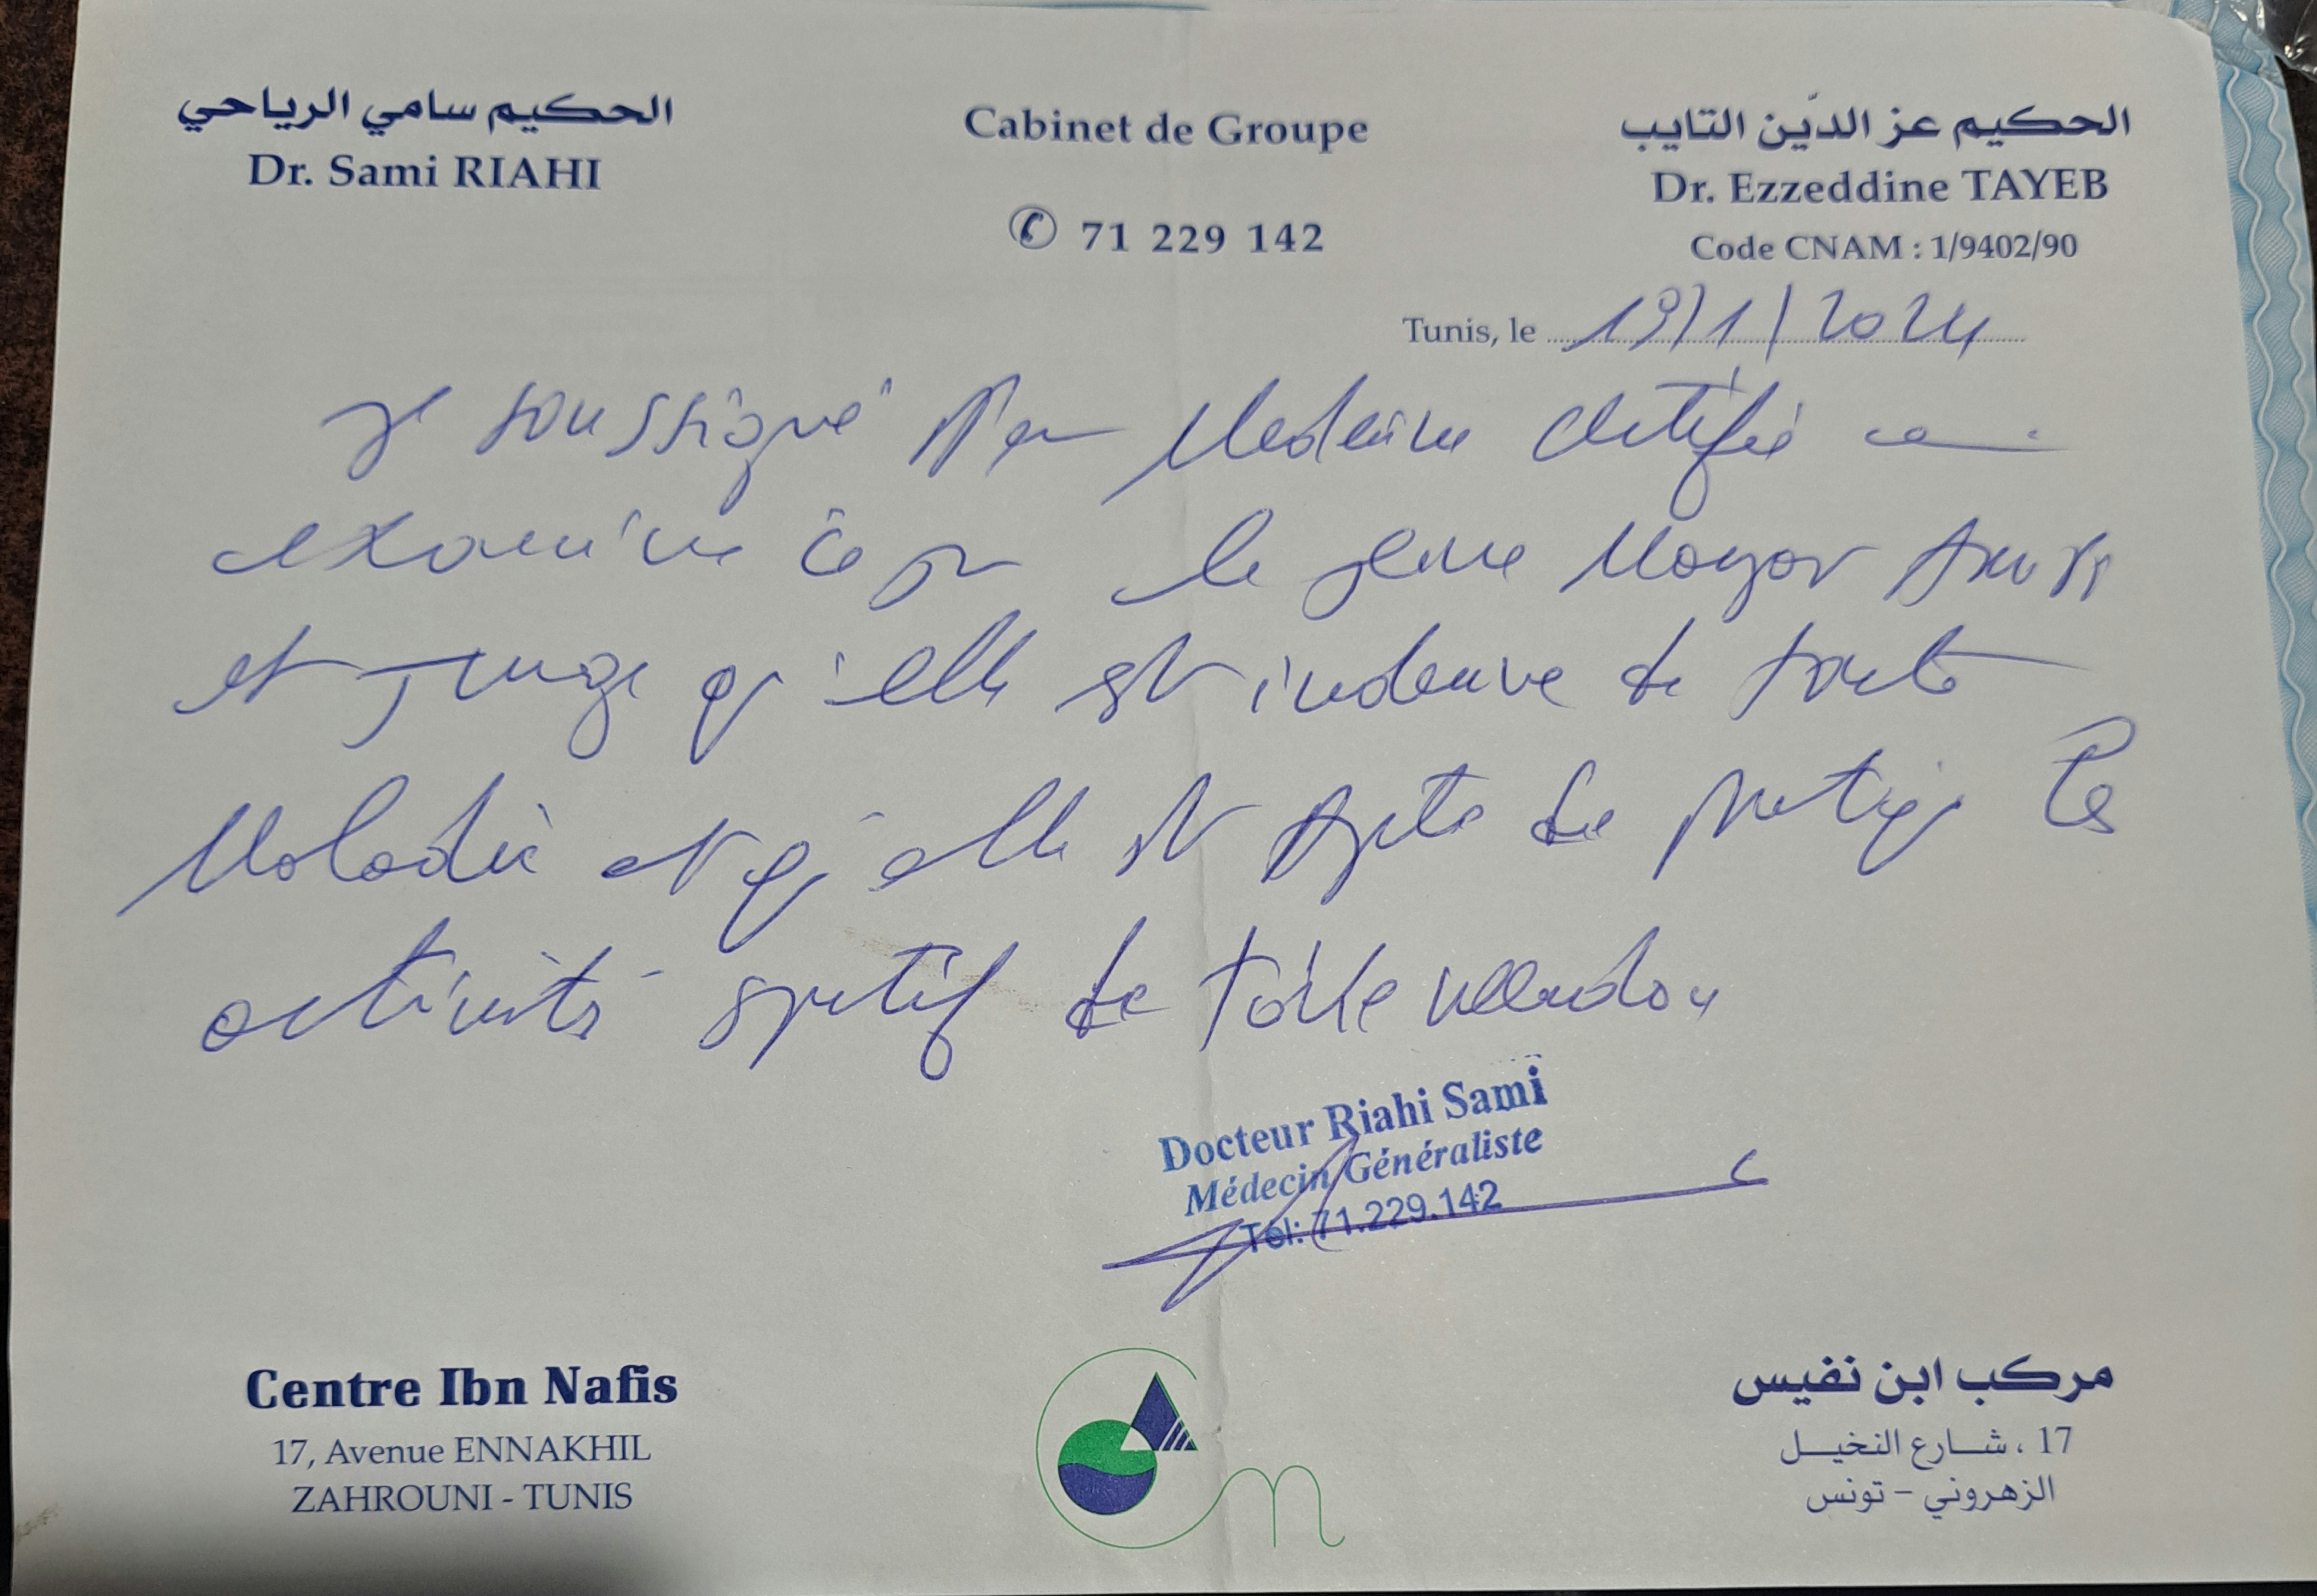 الحكيم سامي الرياحي
Dr. Sami RIAHI
Cabinet de Groupe
✆ 71 229 142
الحكيم عز الدّين التايب
Dr. Ezzeddine TAYEB
Code CNAM : 1/9402/90
Tunis, le 19/1/2024
Je soussigné Medecine certifie
examiné ce jour le jeune
et juge qu'elle est indemne de toute
Maladie et qu'elle est apte de pratiquer les
activité sportif de
Docteur Riahi Sami
Médecin Généraliste
Tél: 71.229.142
Centre Ibn Nafis
17, Avenue ENNAKHIL
ZAHROUNI - TUNIS
مركب ابن نفيس
17 ، شارع النخيل
الزهروني - تونس